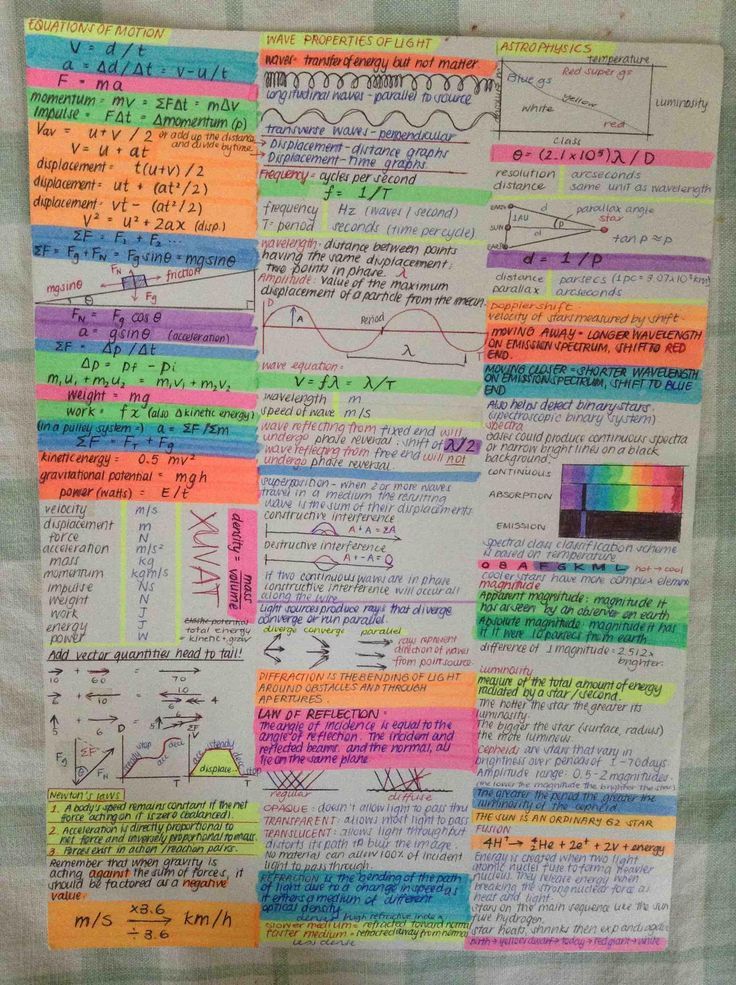 EQUATIONS OF MOTION
V = d/t
a = Δd/Δt = v-u/t
F = ma
momentum = mv = ΣFΔt = mΔv
Impulse = FΔt = Δmomentum (p)
Vav = u+v /2 or add up the distance and divide by time.
V = u + at
displacement = t(u+v)/2
displacement = ut + (at²/2)
displacement = vt - (at²/2)
V² = u² + 2ax (disp.)
ΣF = F₁ + F₂ ...
ΣF = Fg + FN = Fg sinθ = mg sinθ
mg sinθ
FN
friction
Fg
θ
FN = Fg cos θ
a = g sin θ (acceleration)
ΣF = Δp/Δt
Δp = pf - pi
m₁u₁ + m₂u₂ = m₁v₁ + m₂v₂
weight = mg
work = fx (also Δ kinetic energy)
(in a pulley system =) a = ΣF/Σm
ΣF = FT + Fg
kinetic energy = 0.5 mv²
gravitational potential = mgh
power (watts) = E/t
velocity m/s
displacement m
force N
acceleration m/s²
mass kg
momentum kgm/s
impulse Ns
weight N
work J
energy J
power W
XUVAT
density = mass/volume
total energy
kinetic + grav
Add vector quantities head to tail!
10 + 60 = 70
Fg
ΣF
FN
D
steady
stop
acc
decc
T
V
acc
steady
dec
displace
stop
T
Newton's laws
1. A body's speed remains constant if the net
force acting on it is zero (balanced).
2. Acceleration is directly proportional to
net force and inversely proportional to mass.
3. Forces exist in action/reaction pairs.
Remember that when gravity is
acting against the sum of forces, it
should be factored as a negative
value.
m/s ×3.6 km/h
÷3.6
WAVE PROPERTIES OF LIGHT
waves = transfer of energy but not matter.
longitudinal waves - parallel to source
transverse waves - perpendicular
Displacement - distance graphs
Displacement - time graphs
Frequency = cycles per second
f = 1/T
frequency Hz (waves/second)
T = period seconds (time per cycle)
wavelength: distance between points
having the same displacement:
two points in phase. λ
Amplitude: value of the maximum
displacement of a particle from the mean.
D
A
Period
λ
T
wave equation =
V = fλ = λ/T
wavelength m
speed of wave m/s
wave reflecting from fixed end will
undergo phase reversal: shift of λ/2
wave reflecting from free end will not
undergo phase reversal.
superposition - when 2 or more waves
travel in a medium the resulting
wave is the sum of their displacements.
constructive interference
A + A = 2A
destructive interference
A + -A = 0
if two continuous waves are in phase
constructive interference will occur all
along the wire.
Light sources produce rays that diverge
converge or run parallel.
diverge converge parallel
rays represent
direction of waves
from point source.
DIFFRACTION IS THE BENDING OF LIGHT
AROUND OBSTACLES AND THROUGH
APERTURES.
LAW OF REFLECTION =
the angle of incidence is equal to the
angle of reflection. The incident and
reflected beams, and the normal, all
lie on the same plane
regular diffuse
OPAQUE: doesn't allow light to pass thru
TRANSPARENT: allows most light to pass
TRANSLUCENT: allows light through but
distorts its path to blur the image.
No material can allow 100% of incident
light to pass through.
REFRACTION is the bending of the path
of light due to a change in speed as
it enters a medium of different
optical density.
denser = high refractive index
slower medium = refracted toward normal
faster medium = refracted away from normal
less dense
ASTROPHYSICS
temperature
Blue gs
Red super gs
white
yellow
red
luminosity
class
θ = (2.1 x 10⁵) λ / D
resolution arcseconds
distance same unit as wavelength
EARTH
SUN
EARTH
1AU
d
d
p
parallax angle
star
tan p ≈ p
d = 1/p
distance parsecs
parallax arcseconds
Doppler shift -
velocity of stars measured by shift.
MOVING AWAY = LONGER WAVELENGTH
ON EMISSION SPECTRUM, SHIFT TO RED
END.
MOVING CLOSER = SHORTER WAVELENGTH
ON EMISSION SPECTRUM, SHIFT TO BLUE
END
Also helps detect binary stars.
(spectroscopic binary system)
Spectra
Gases could produce continuous spectra
or narrow bright lines on a black
background.
CONTINUOUS
ABSORPTION
EMISSION
Spectral class classification scheme
is based on temperature
O B A F G K M L hot → cool
cooler stars have more complex elements
magnitude
Apparent magnitude: magnitude it
has as seen by an observer on earth
Absolute magnitude: magnitude it has
if it were 10 parsecs from earth
difference of 1 magnitude = 2.512x
brighter.
Luminosity
measure of the total amount of energy
radiated by a star/second.
The hotter the star the greater its
luminosity.
The bigger the star (surface, radius)
the more luminous.
Cepheids are stars that vary in
brightness over periods of 1-70 days
Amplitude range: 0.5-2 magnitudes.
the lower the magnitude the brighter the star
The greater the period the greater the
luminosity of the cepheid.
THE SUN IS AN ORDINARY G2 STAR
FUSION
4H⁺ → ⁴₂He + 2e⁺ + 2V + energy
Energy is created when two light
atomic nuclei fuse to form a heavier
nucleus. They release energy when
breaking the strong nuclear force as
heat and light.
Stars on the main sequence like the sun
fuse hydrogen.
star heats, shrinks then expands again
birth → yellow dwarf → today → red giant → white